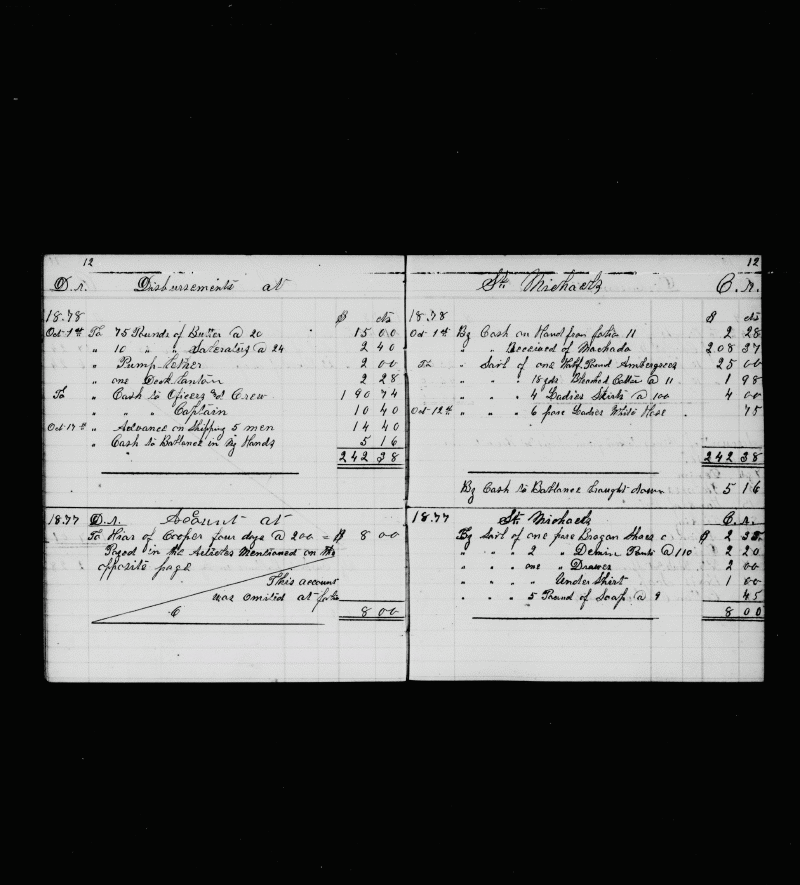 12
D.r. Disbursements at
1878 $ cts
Oct 1st To 75 Pounds of Butter @ 20 15 00
" 10 " " Saleratus @ 24 2 40
" Pump Lether 2 00
" one Deck Lantan 2 28
To " Cash to Officers and Crew 190 74
" " " Captain 10 40
Oct 17th " Advance on Shipping 5 men 14 40
" Cash to Ballance in My Hands 5 16
242 38
1877 D.r. Account at
To Hiar of Cooper four days @ 200 = $ 8 00
Payed in the Articles Mentioned on the
opposite page
This account
was omited at
6 8 00
12
St. Michaels C.r.
1878 $ cts
Oct 1st By Cash on Hand from 11 2 28
" Received of Machado 208 37
" Sail of one Half Pound Ambergrees 25 00
" " " 18 yds Bleached Cotton @ 11 1 98
" " " 4 Ladies Skirts @ 100 4 00
Oct 12th " " " 6 pare Ladies White Hose 75
242 38
By Cash to Ballance braught down 5 16
1877 St. Michaels C.r.
By Sail of one pare Brogan Shoes $ 2 35
" " " 2 " Denim Pants @ 110 2 20
" " " one " Drawes 2 00
" " " " Under Shirt 1 00
" " " 5 Pound of Soap @ 9 45
8 00